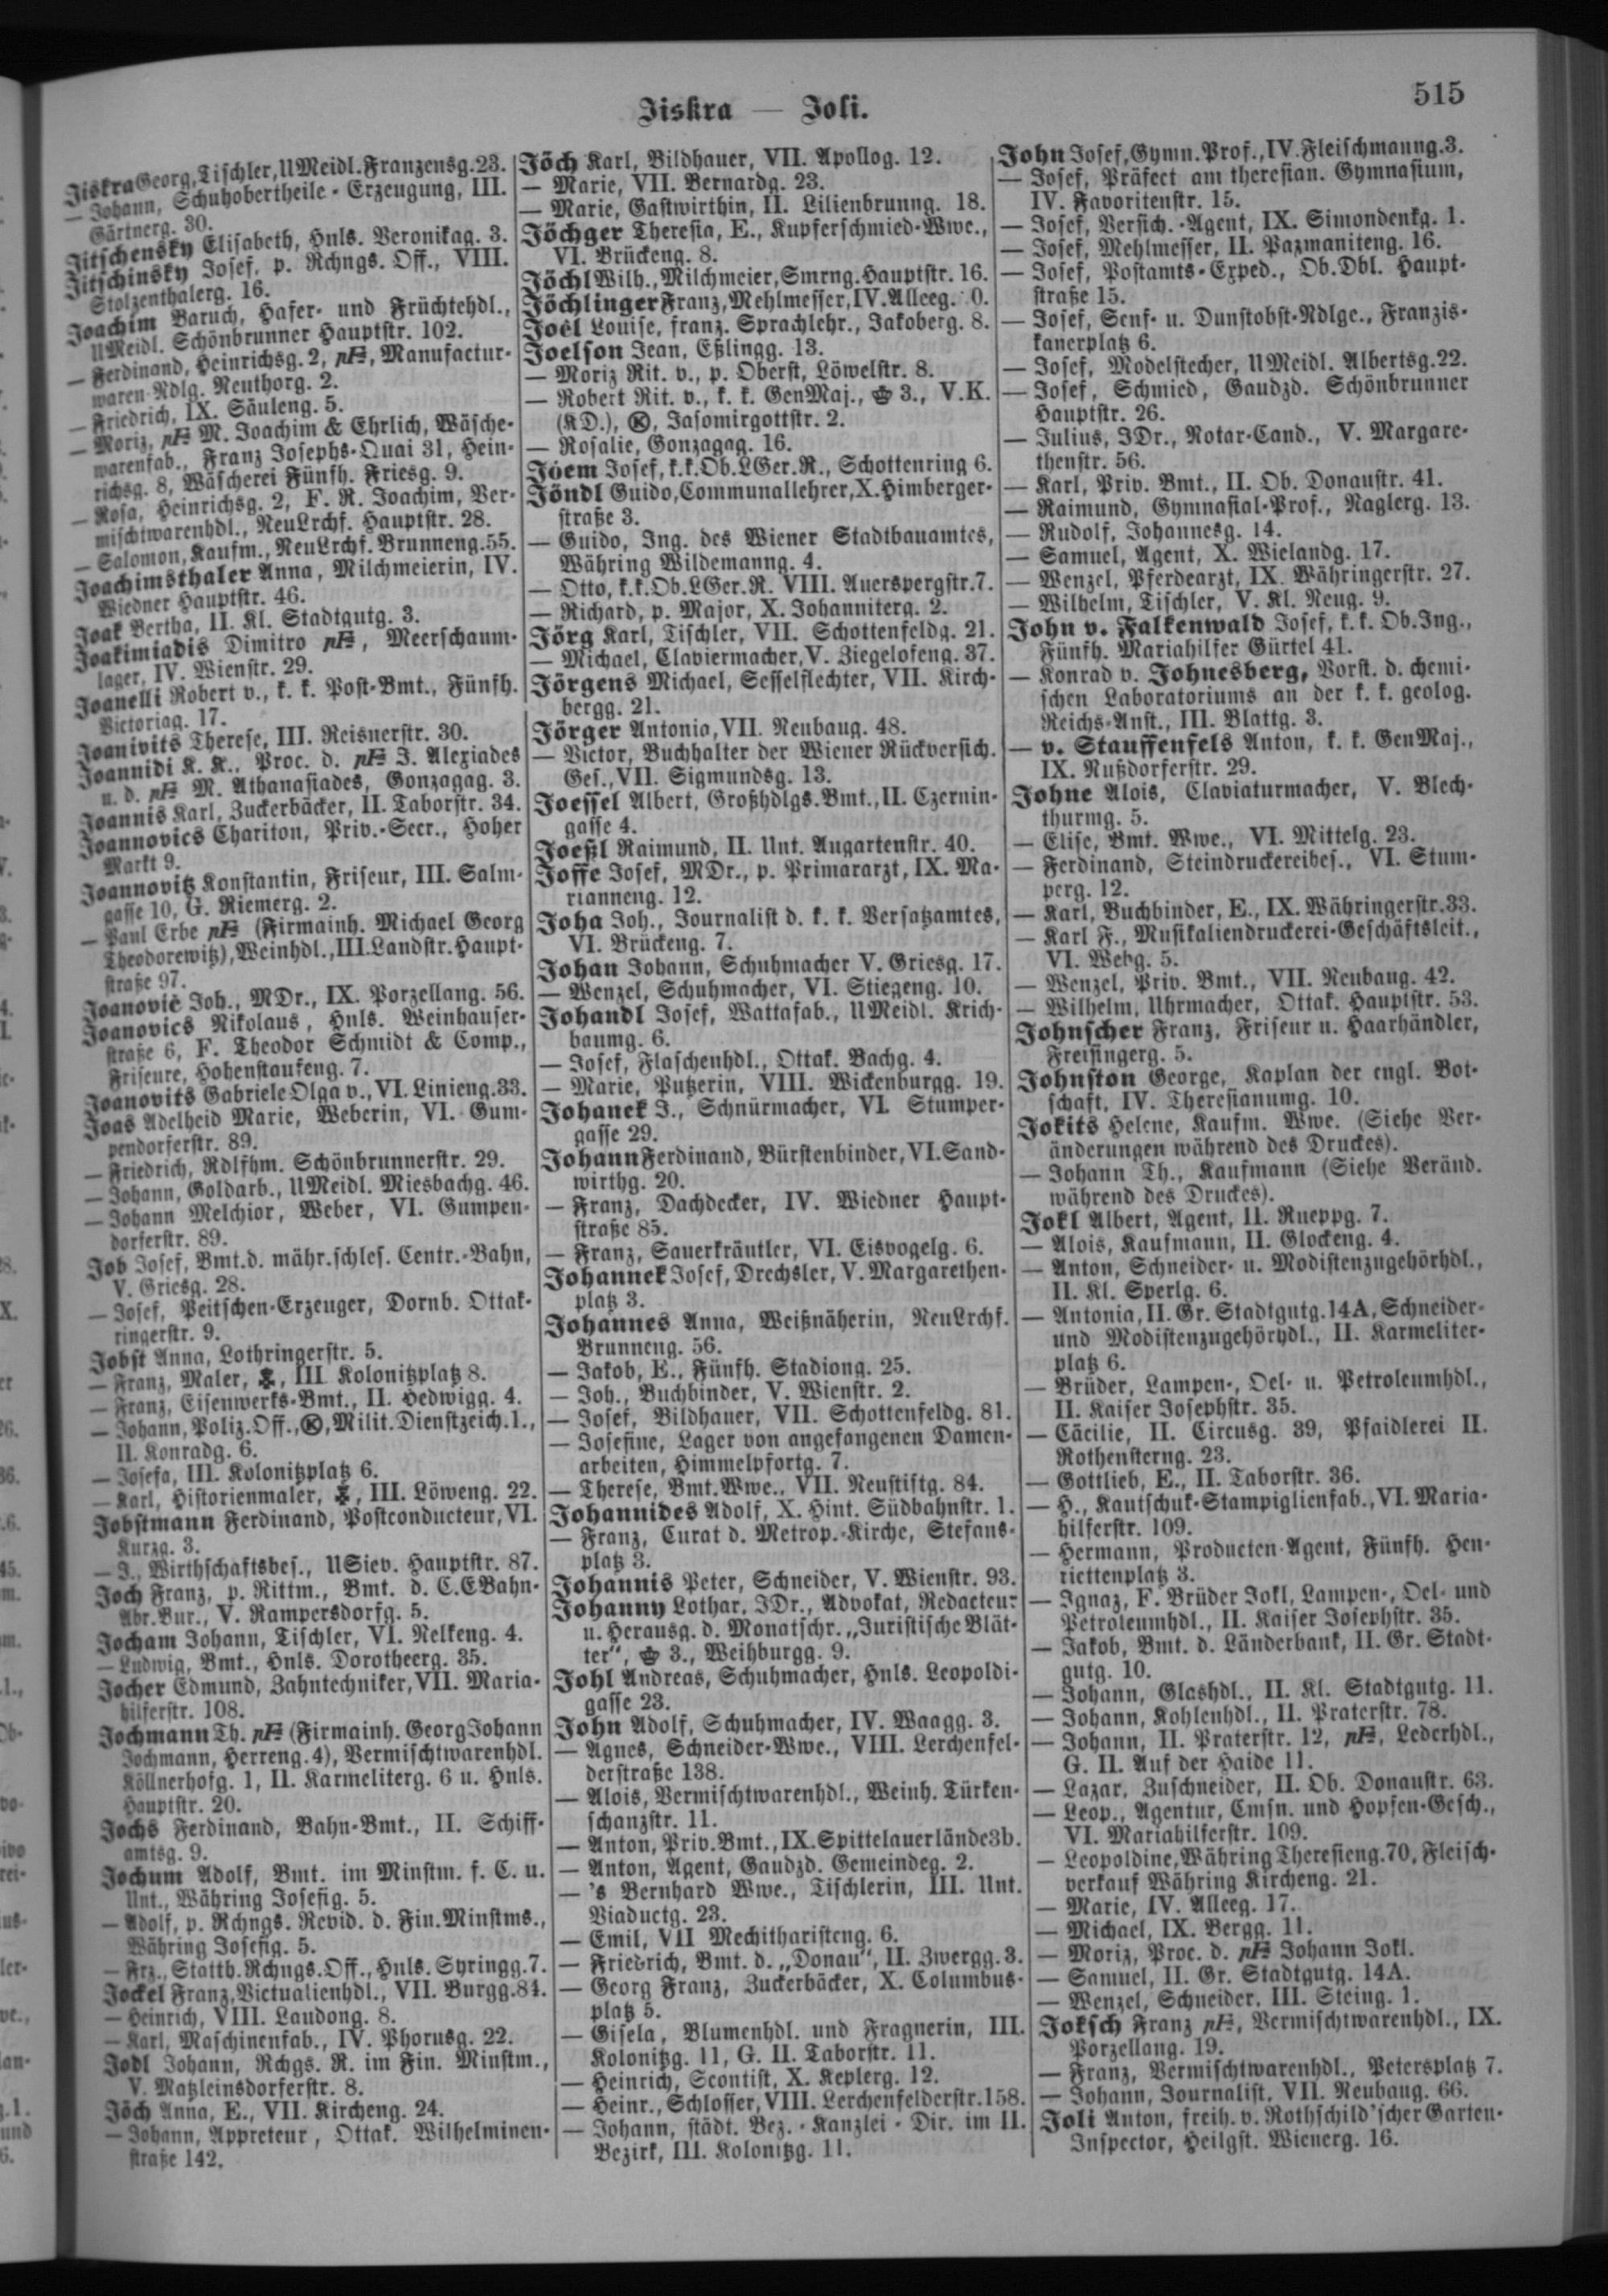 Jiskra — Joli.
515
Jiskra Georg, Tischler, UMeidl. Franzensg. 23.
— Johann, Schuhobertheile-Erzeugung, III.
Gärtnerg. 30.
Jitschensky Elisabeth, Hnls. Veronikag. 3.
Jitschinsky Josef, p. Rchngs. Off., VIII.
Stolzenthalerg. 16.
Joachim Baruch, Hafer- und Früchtehdl.,
UMeidl. Schönbrunner Hauptstr. 102.
— Ferdinand, Heinrichsg. 2, Manufactur-
waren-Ndlg. Neuthorg. 2.
— Friedrich, IX. Säuleng. 5.
— Moriz, M. Joachim & Ehrlich, Wäsche-
warenfab., Franz Josephs-Quai 31, Hein-
richsg. 8, Wäscherei Fünfh. Friesg. 9.
— Rosa, Heinrichsg. 2, F. R. Joachim, Ver-
mischtwarenhdl., NeuLrchf. Hauptstr. 28.
— Salomon, Kaufm., NeuLrchf. Brunneng. 55.
Joachimsthaler Anna, Milchmeierin, IV.
Wiedner Hauptstr. 46.
Joak Bertha, II. Kl. Stadtgutg. 3.
Joakimiadis Dimitro, Meerschaum-
lager, IV. Wienstr. 29.
Joanelli Robert v., k. k. Post-Bmt., Fünfh.
Victoriag. 17.
Joanivits Therese, III. Reisnerstr. 30.
Joannidi K. K., Proc. d. J. Alexiades
u. d. M. Athanasiades, Gonzagag. 3.
Joannis Karl, Zuckerbäcker, II. Taborstr. 34.
Joannovics Chariton, Priv.-Secr., Hoher
Markt 9.
Joannovitz Konstantin, Friseur, III. Salm-
gasse 10, G. Riemerg. 2.
— Paul Erbe (Firmainh. Michael Georg
Theodorewitz), Weinhdl., III. Landstr. Haupt-
straße 97.
Joanovič Joh., MDr., IX. Porzellang. 56.
Joanovics Nikolaus, Hnls. Weinhauser-
straße 6, F. Theodor Schmidt & Comp.,
Friseure, Hohenstaufeng. 7.
Joanovits Gabriele Olga v., VI. Linieng. 33.
Joas Adelheid Marie, Weberin, VI. Gum-
pendorferstr. 89.
— Friedrich, Rdlfhm. Schönbrunnerstr. 29.
— Johann, Goldarb., UMeidl. Miesbachg. 46.
— Johann Melchior, Weber, VI. Gumpen-
dorferstr. 89.
Job Josef, Bmt. d. mähr. schles. Centr.-Bahn,
V. Griesg. 28.
— Josef, Peitschen-Erzeuger, Dornb. Ottak-
ringerstr. 9.
Jobst Anna, Lothringerstr. 5.
— Franz, Maler, III Kolonitzplatz 8.
— Franz, Eisenwerks-Bmt., II. Hedwigg. 4.
— Johann, Poliz. Off., Ⓚ, Milit. Dienstzeich. 1.,
II. Konradg. 6.
— Josefa, III. Kolonitzplatz 6.
— Karl, Historienmaler, III. Löweng. 22.
Jobstmann Ferdinand, Postconducteur, VI.
Kurzg. 3.
— J., Wirthschaftsbes., USiev. Hauptstr. 87.
Joch Franz, p. Rittm., Bmt. d. C.EBahn-
Abr. Bur., V. Rampersdorfg. 5.
Jocham Johann, Tischler, VI. Nelkeng. 4.
— Ludwig, Bmt., Hnls. Dorotheerg. 35.
Jocher Edmund, Zahntechniker, VII. Maria-
hilferstr. 108.
Jochmann Th. (Firmainh. Georg Johann
Jochmann, Herreng. 4), Vermischtwarenhdl.
Köllnerhofg. 1, II. Karmeliterg. 6 u. Hnls.
Hauptstr. 20.
Jochs Ferdinand, Bahn-Bmt., II. Schiff-
amtsg. 9.
Jochum Adolf, Bmt. im Minstm. f. C. u.
Unt., Währing Josefig. 5.
— Adolf, p. Rchngs. Revid. d. Fin. Minstms.,
Währing Josefig. 5.
— Frz., Statth. Rchngs. Off., Hnls. Syringg. 7.
Jockel Franz, Victualienhdl., VII. Burgg. 84.
— Heinrich, VIII. Laudong. 8.
— Karl, Maschinenfab., IV. Phorusg. 22.
Jodl Johann, Rchgs. R. im Fin. Minstm.,
V. Matzleinsdorferstr. 8.
Jöch Anna, E., VII. Kircheng. 24.
— Johann, Appreteur, Ottak. Wilhelminen-
straße 142.
Jöch Karl, Bildhauer, VII. Apollog. 12.
— Marie, VII. Bernardg. 23.
— Marie, Gastwirthin, II. Lilienbrunng. 18.
Jöchger Theresia, E., Kupferschmied-Wwe.,
VI. Brückeng. 8.
Jöchl Wilh., Milchmeier, Smrng. Hauptstr. 16.
Jöchlinger Franz, Mehlmesser, IV. Alleeg.
Joël Louise, franz. Sprachlehr., Jakoberg. 8.
Joelson Jean, Eßlingg. 13.
— Moriz Rit. v., p. Oberst, Löwelstr. 8.
— Robert Rit. v., k. k. GenMaj., 3., V.K.
(KD.), Ⓚ, Jasomirgottstr. 2.
— Rosalie, Gonzagag. 16.
Jöem Josef, k. k. Ob. LGer. R., Schottenring 6.
Jöndl Guido, Communallehrer, X. Himberger-
straße 3.
— Guido, Ing. des Wiener Stadtbauamtes,
Währing Wildemanng. 4.
— Otto, k. k. Ob. LGer. R. VIII. Auerspergstr. 7.
— Richard, p. Major, X. Johanniterg. 2.
Jörg Karl, Tischler, VII. Schottenfeldg. 21.
— Michael, Claviermacher, V. Ziegelofeng. 37.
Jörgens Michael, Sesselflechter, VII. Kirch-
bergg. 21.
Jörger Antonia, VII. Neubaug. 48.
— Victor, Buchhalter der Wiener Rückversich.
Ges., VII. Sigmundsg. 13.
Joessel Albert, Großhdlgs. Bmt., II. Czernin-
gasse 4.
Joeßl Raimund, II. Unt. Augartenstr. 40.
Joffe Josef, MDr., p. Primararzt, IX. Ma-
rianneng. 12.
Joha Joh., Journalist d. k. k. Versatzamtes,
VI. Brückeng. 7.
Johan Johann, Schuhmacher V. Griesg. 17.
— Wenzel, Schuhmacher, VI. Stiegeng. 10.
Johandl Josef, Wattafab., UMeidl. Krich-
baumg. 6.
— Josef, Flaschenhdl., Ottak. Bachg. 4.
— Marie, Putzerin, VIII. Wickenburgg. 19.
Johanek J., Schnürmacher, VI. Stumper-
gasse 29.
Johann Ferdinand, Bürstenbinder, VI. Sand-
wirthg. 20.
— Franz, Dachdecker, IV. Wiedner Haupt-
straße 85.
— Franz, Sauerkräutler, VI. Eisvogelg. 6.
Johannek Josef, Drechsler, V. Margarethen-
platz 3.
Johannes Anna, Weißnäherin, NeuLrchf.
Brunneng. 56.
— Jakob, E., Fünfh. Stadiong. 25.
— Joh., Buchbinder, V. Wienstr. 2.
— Josef, Bildhauer, VII. Schottenfeldg. 81.
— Josefine, Lager von angefangenen Damen-
arbeiten, Himmelpfortg. 7.
— Therese, Bmt. Wwe., VII. Neustiftg. 84.
Johannides Adolf, X. Hint. Südbahnstr. 1.
— Franz, Curat d. Metrop.-Kirche, Stefans-
platz 3.
Johannis Peter, Schneider, V. Wienstr. 93.
Johanny Lothar, JDr., Advokat, Redacteur
u. Herausg. d. Monatschr. „Juristische Blät-
ter“, 3., Weihburgg. 9.
Johl Andreas, Schuhmacher, Hnls. Leopoldi-
gasse 23.
John Adolf, Schuhmacher, IV. Waagg. 3.
— Agnes, Schneider-Wwe., VIII. Lerchenfel-
derstraße 138.
— Alois, Vermischtwarenhdl., Weinh. Türken-
schanzstr. 11.
— Anton, Priv. Bmt., IX. Spittelauerlände 3b.
— Anton, Agent, Gaudzd. Gemeindeg. 2.
— 's Bernhard Wwe., Tischlerin, III. Unt.
Viaductg. 23.
— Emil, VII Mechitharisteng. 6.
— Friedrich, Bmt. d. „Donau“, II. Zwergg. 3.
— Georg Franz, Zuckerbäcker, X. Columbus-
platz 5.
— Gisela, Blumenhdl. und Fragnerin, III.
Kolonitzg. 11, G. II. Taborstr. 11.
— Heinrich, Scontist, X. Keplerg. 12.
— Heinr., Schlosser, VIII. Lerchenfelderstr. 158.
— Johann, städt. Bez.-Kanzlei-Dir. im II.
Bezirk, III. Kolonitzg. 11.
John Josef, Gymn. Prof., IV. Fleischmanng. 3.
— Josef, Präfect am theresian. Gymnasium,
IV. Favoritenstr. 15.
— Josef, Versich.-Agent, IX. Simondenkg. 1.
— Josef, Mehlmesser, II. Pazmaniteng. 16.
— Josef, Postamts-Exped., Ob. Dbl. Haupt-
straße 15.
— Josef, Senf- u. Dunstobst-Ndlge., Franzis-
kanerplatz 6.
— Josef, Modelstecher, UMeidl. Albertsg. 22.
— Josef, Schmied, Gaudzd. Schönbrunner
Hauptstr. 26.
— Julius, JDr., Notar-Cand., V. Margare-
thenstr. 56.
— Karl, Priv. Bmt., II. Ob. Donaustr. 41.
— Raimund, Gymnasial-Prof., Naglerg. 13.
— Rudolf, Johannesg. 14.
— Samuel, Agent, X. Wielandg. 17.
— Wenzel, Pferdearzt, IX. Währingerstr. 27.
— Wilhelm, Tischler, V. Kl. Neug. 9.
John v. Falkenwald Josef, k. k. Ob. Ing.,
Fünfh. Mariahilfer Gürtel 41.
— Konrad v. Johnesberg, Vorst. d. chemi-
schen Laboratoriums an der k. k. geolog.
Reichs-Anst., III. Blattg. 3.
— v. Stauffenfels Anton, k. k. GenMaj.,
IX. Nußdorferstr. 29.
Johne Alois, Claviaturmacher, V. Blech-
thurmg. 5.
— Elise, Bmt. Wwe., VI. Mittelg. 23.
— Ferdinand, Steindruckereibes., VI. Stum-
perg. 12.
— Karl, Buchbinder, E., IX. Währingerstr. 33.
— Karl F., Musikaliendruckerei-Geschäftsleit.,
VI. Webg. 5.
— Wenzel, Priv. Bmt., VII. Neubaug. 42.
— Wilhelm, Uhrmacher, Ottak. Hauptstr. 53.
Johnscher Franz, Friseur u. Haarhändler,
Freisingerg. 5.
Johnston George, Kaplan der engl. Bot-
schaft, IV. Theresianumg. 10.
Jokits Helene, Kaufm. Wwe. (Siehe Ver-
änderungen während des Druckes).
— Johann Th., Kaufmann (Siehe Veränd.
während des Druckes).
Jokl Albert, Agent, II. Rueppg. 7.
— Alois, Kaufmann, II. Glockeng. 4.
— Anton, Schneider- u. Modistenzugehörhdl.,
II. Kl. Sperlg. 6.
— Antonia, II. Gr. Stadtgutg. 14A, Schneider-
und Modistenzugehörhdl., II. Karmeliter-
platz 6.
— Brüder, Lampen-, Oel- u. Petroleumhdl.,
II. Kaiser Josephstr. 35.
— Cäcilie, II. Circusg. 39, Pfaidlerei II.
Rothensterng. 23.
— Gottlieb, E., II. Taborstr. 36.
— H., Kautschuk-Stampiglienfab., VI. Maria-
hilferstr. 109.
— Hermann, Producten-Agent, Fünfh. Hen-
riettenplatz 3.
— Ignaz, F. Brüder Jokl, Lampen-, Oel- und
Petroleumhdl., II. Kaiser Josephstr. 35.
— Jakob, Bmt. d. Länderbank, II. Gr. Stadt-
gutg. 10.
— Johann, Glashdl., II. Kl. Stadtgutg. 11.
— Johann, Kohlenhdl., II. Praterstr. 78.
— Johann, II. Praterstr. 12, Lederhdl.,
G. II. Auf der Haide 11.
— Lazar, Zuschneider, II. Ob. Donaustr. 63.
— Leop., Agentur, Cmsn. und Hopfen-Gesch.,
VI. Mariahilferstr. 109.
— Leopoldine, Währing Theresieng. 70, Fleisch-
verkauf Währing Kircheng. 21.
— Marie, IV. Alleeg. 17.
— Michael, IX. Bergg. 11.
— Moriz, Proc. d. Johann Jokl.
— Samuel, II. Gr. Stadtgutg. 14A.
— Wenzel, Schneider, III. Steing. 1.
Joksch Franz, Vermischtwarenhdl., IX.
Porzellang. 19.
— Franz, Vermischtwarenhdl., Petersplatz 7.
— Johann, Journalist, VII. Neubaug. 66.
Joli Anton, freih. v. Rothschild'scher Garten-
Inspector, Heilgst. Wienerg. 16.